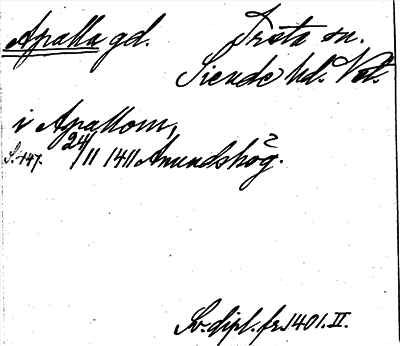 Apalla gd. Irsta sn.
Siende hd. Vstl.
i Apallom,
S. 147. 24/11 1411 Anundshög.
Sv. dipl. fr. 1401. II.